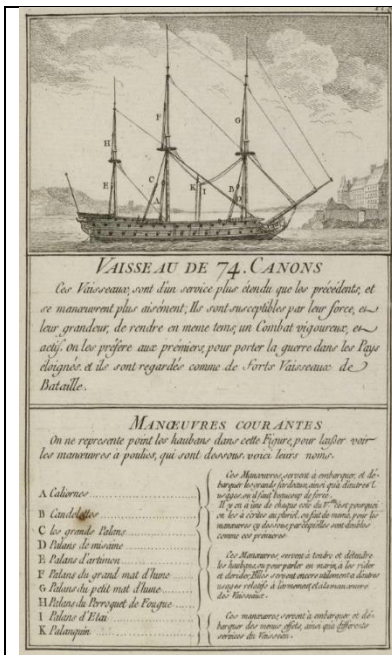 VAISSEAU DE 74. CANONS
Ces Vaisseaux, sont d'un service plus étendu que les précédents, et
se manœuvrent plus aisément; Ils sont susceptibles par leur force, et
leur grandeur, de rendre en meme tems, un Combat vigoureux, et
actif. on les préfere aux prémiers, pour porter la guerre dans les Pays
éloignés. et ils sont regardés comme de forts Vaisseaux de
Bataille.
MANŒUVRES COURANTES
On ne represente point les haubans dans cette Figure, pour laisser voir
les manœuvres à poulies, qui sont dessous, voici leurs noms.
A Caliornes
B Candelettes
C les grands Palans
D Palans de misaine
E Palans d'artimon
F Palans du grand mat d'hune
G Palans du petit mat d'hune
H Palans du Perroquet de Fougue
I Palans d'Etai
K Palanquin
Ces Manœuvres, servent à embarquer, et dé-
barquer les grands fardeaux, ainsi qu'à d'autres
usages, ou il faut beaucoup de force.
Il y en a une de chaque côté du V.eau c'est pourquoi
on les a écrites au pluriel, en fait de même, pour les
manœuvres cy dessous, parcequ'elles sont doubles
comme ces premieres
Ces Manœuvres, servent à tendre et détendre
les haubans, ou pour parler en marin, à les rider
et derider, Elles servent encore
usages relatifs à l'armement, et à la manœuvre
des Vaisseaux.
Ces manœuvres servent à embarquer et dé-
barquer des menus effets, ainsi qu'à differents
services du Vaisseau.
H
E
F
C
A
K
I
G
B
D